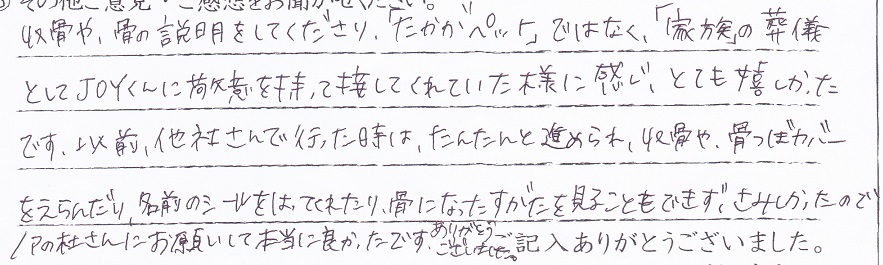 その他ご意見・ご感想をお聞かせください。
収骨や、骨の説明をしてくださり、「たかがペット」ではなく、「家族」の葬儀
としてJOYくんに敬意を持って接してくれていた様に感じ、とても嬉しかった
です。以前、他社さんで行った時は、たんたんと進められ、収骨や、骨つぼカバー
をえらんだり、名前のシールをはってくれたり、骨になったすがたを見ることもできず、さみしかったので
ノアの杜さんにお願いして本当に良かったです。ありがとうございました。
ご記入ありがとうございました。